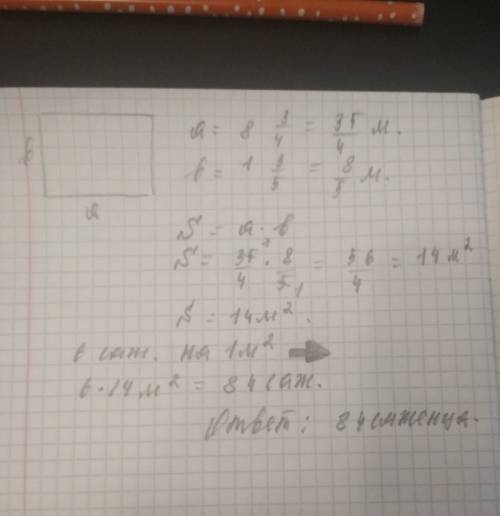 a = 8 3/4 = 35/4 м.
в
в = 1 3/5 = 8/5 м.
a
S = a · в
S = 35/4 · 8/5 = 56/4 = 14 м²
S = 14 м².
6 саж. на 1 м²
6 · 14 м² = 84 саж.
Ответ: 84 саженца.